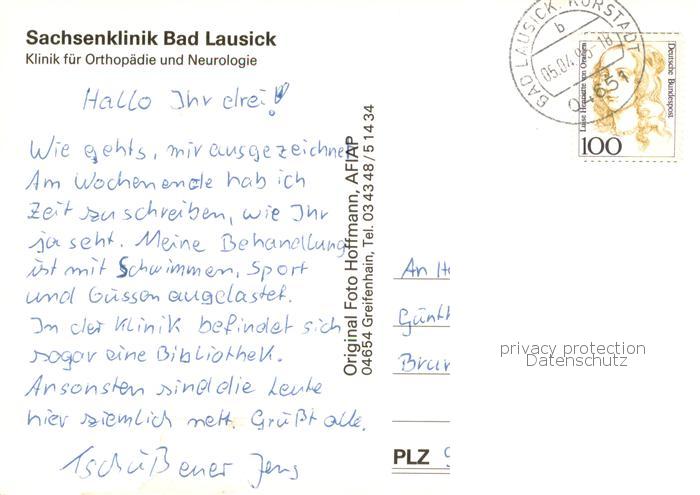 Sachsenklinik Bad Lausick
Klinik für Orthopädie und Neurologie
Hallo Ihr drei!
Wie gehts, mir ausgezeichnet
Am Wochenende hab ich
Zeit zu schreiben, wie Ihr
ja seht. Meine Behandlung
ist mit Schwimmen, Sport
und Güssen ausgelastet.
In der Klinik befindet sich
sogar eine Bibliothek.
Ansonsten sind die Leute
hier ziemlich nett. Grüßt alle.
Tschüß euer Jens
Original Foto Hoffmann, AFIAP
04654 Greifenhain, Tel. 03 43 48 / 5 14 34
BAD LAUSICK, KURSTADT
b
04651
Deutsche Bundespost
Luise Henriette von Oranien
100
An
Günth
privacy protection
Datenschutz
PLZ